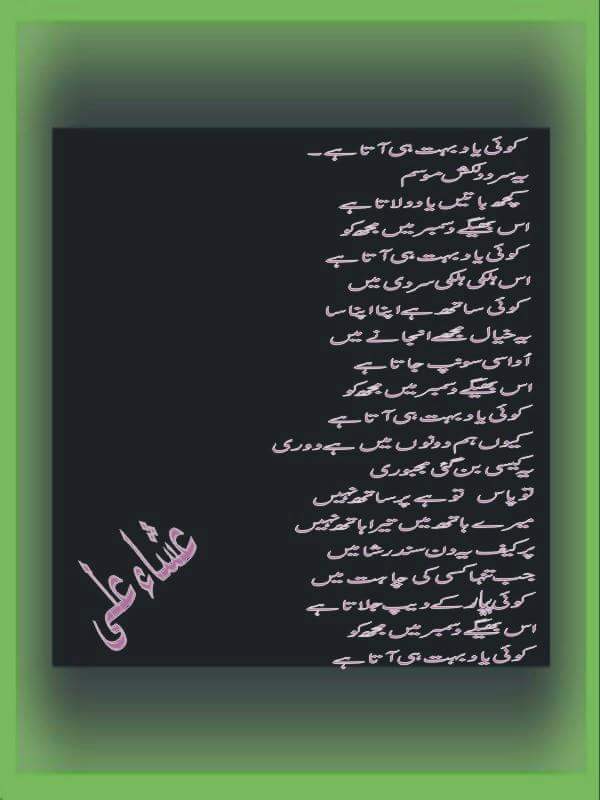 کوئی یاد بہت ہی آتا ہے ۔
یہ سرد دلکش موسم
کچھ باتیں یاد دلاتا ہے
اس بھیگے دسمبر میں مجھ کو
کوئی یاد بہت ہی آتا ہے
اس ہلکی ہلکی سردی میں
کوئی ساتھ ہے اپنا اپنا سا
یہ خیال مجھے انجانے میں
اُداسی سونپ جاتا ہے
اس بھیگے دسمبر میں مجھ کو
کوئی یاد بہت ہی آتا ہے
کیوں ہم دونوں میں ہے دوری
یہ کیسی بن گئی مجبوری
تو پاس تو ہے پر ساتھ نہیں
میرے ہاتھ میں تیرا ہاتھ نہیں
پر کیف یہ دن سندر شامیں
جب تنہا کسی کی چاہت میں
کوئی پیار کے دیپ جلاتا ہے
اس بھیگے دسمبر میں مجھ کو
کوئی یاد بہت ہی آتا ہے
عشاء علی